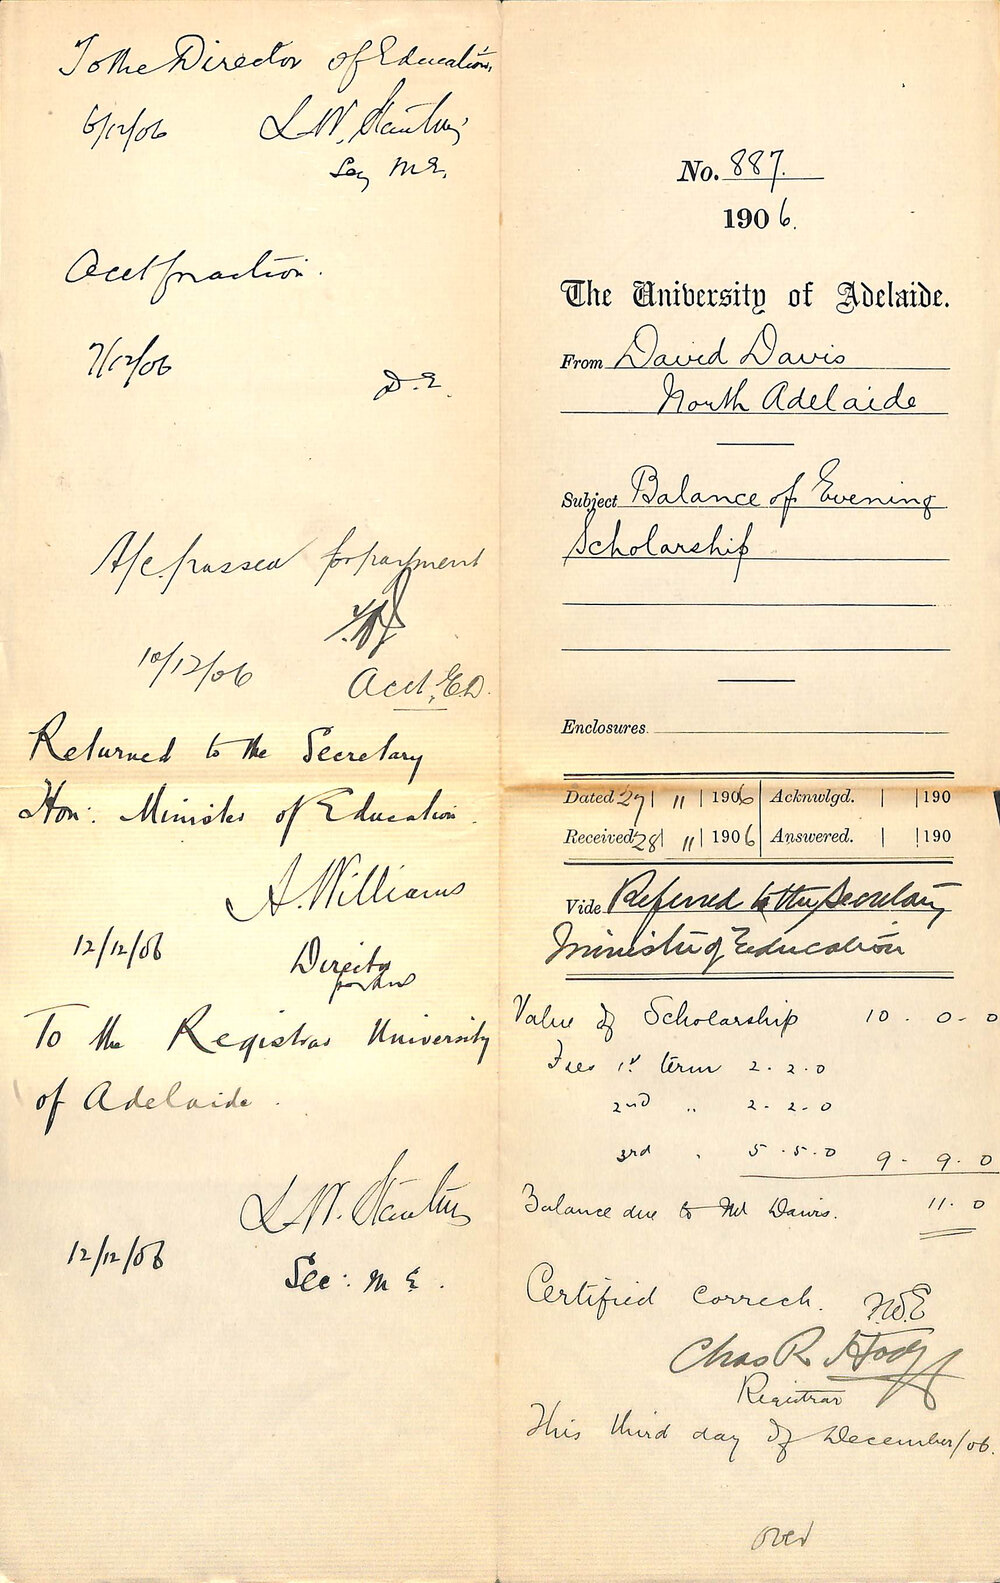 To the Director of Education,
6/12/06 L W. Stanton
Sec M E.
Acct for action.
7/12/06
D. E.
A/c. passed for payment
10/12/06
Acct, E.D.
Returned to the Secretary
Hon: Minister of Education.
A. Williams
12/12/06 Director
To the Registrar University
of Adelaide.
L. W. Stanton
12/12/06
Sec: M E.
No. 887.
1906.
The University of Adelaide.
From David Davis
North Adelaide
Subject Balance of Evening
Scholarship
Enclosures
Dated 27 | 11 | 1906 | Acknwlgd. | | 190
Received 28 | 11 | 1906 | Answered. | | 190
Vide Referred to the Secretary
Minister of Education
Value of Scholarship 10 . 0 - 0
Fees 1st term 2 . 2 . 0
2nd " 2 - 2 . 0
3rd . 5 . 5 . 0 9 - 9 . 0
Balance due to Mr Davis. 11 . 0
Certified correct.
Chas R Hodge
Registrar
This third day of December/06.
over